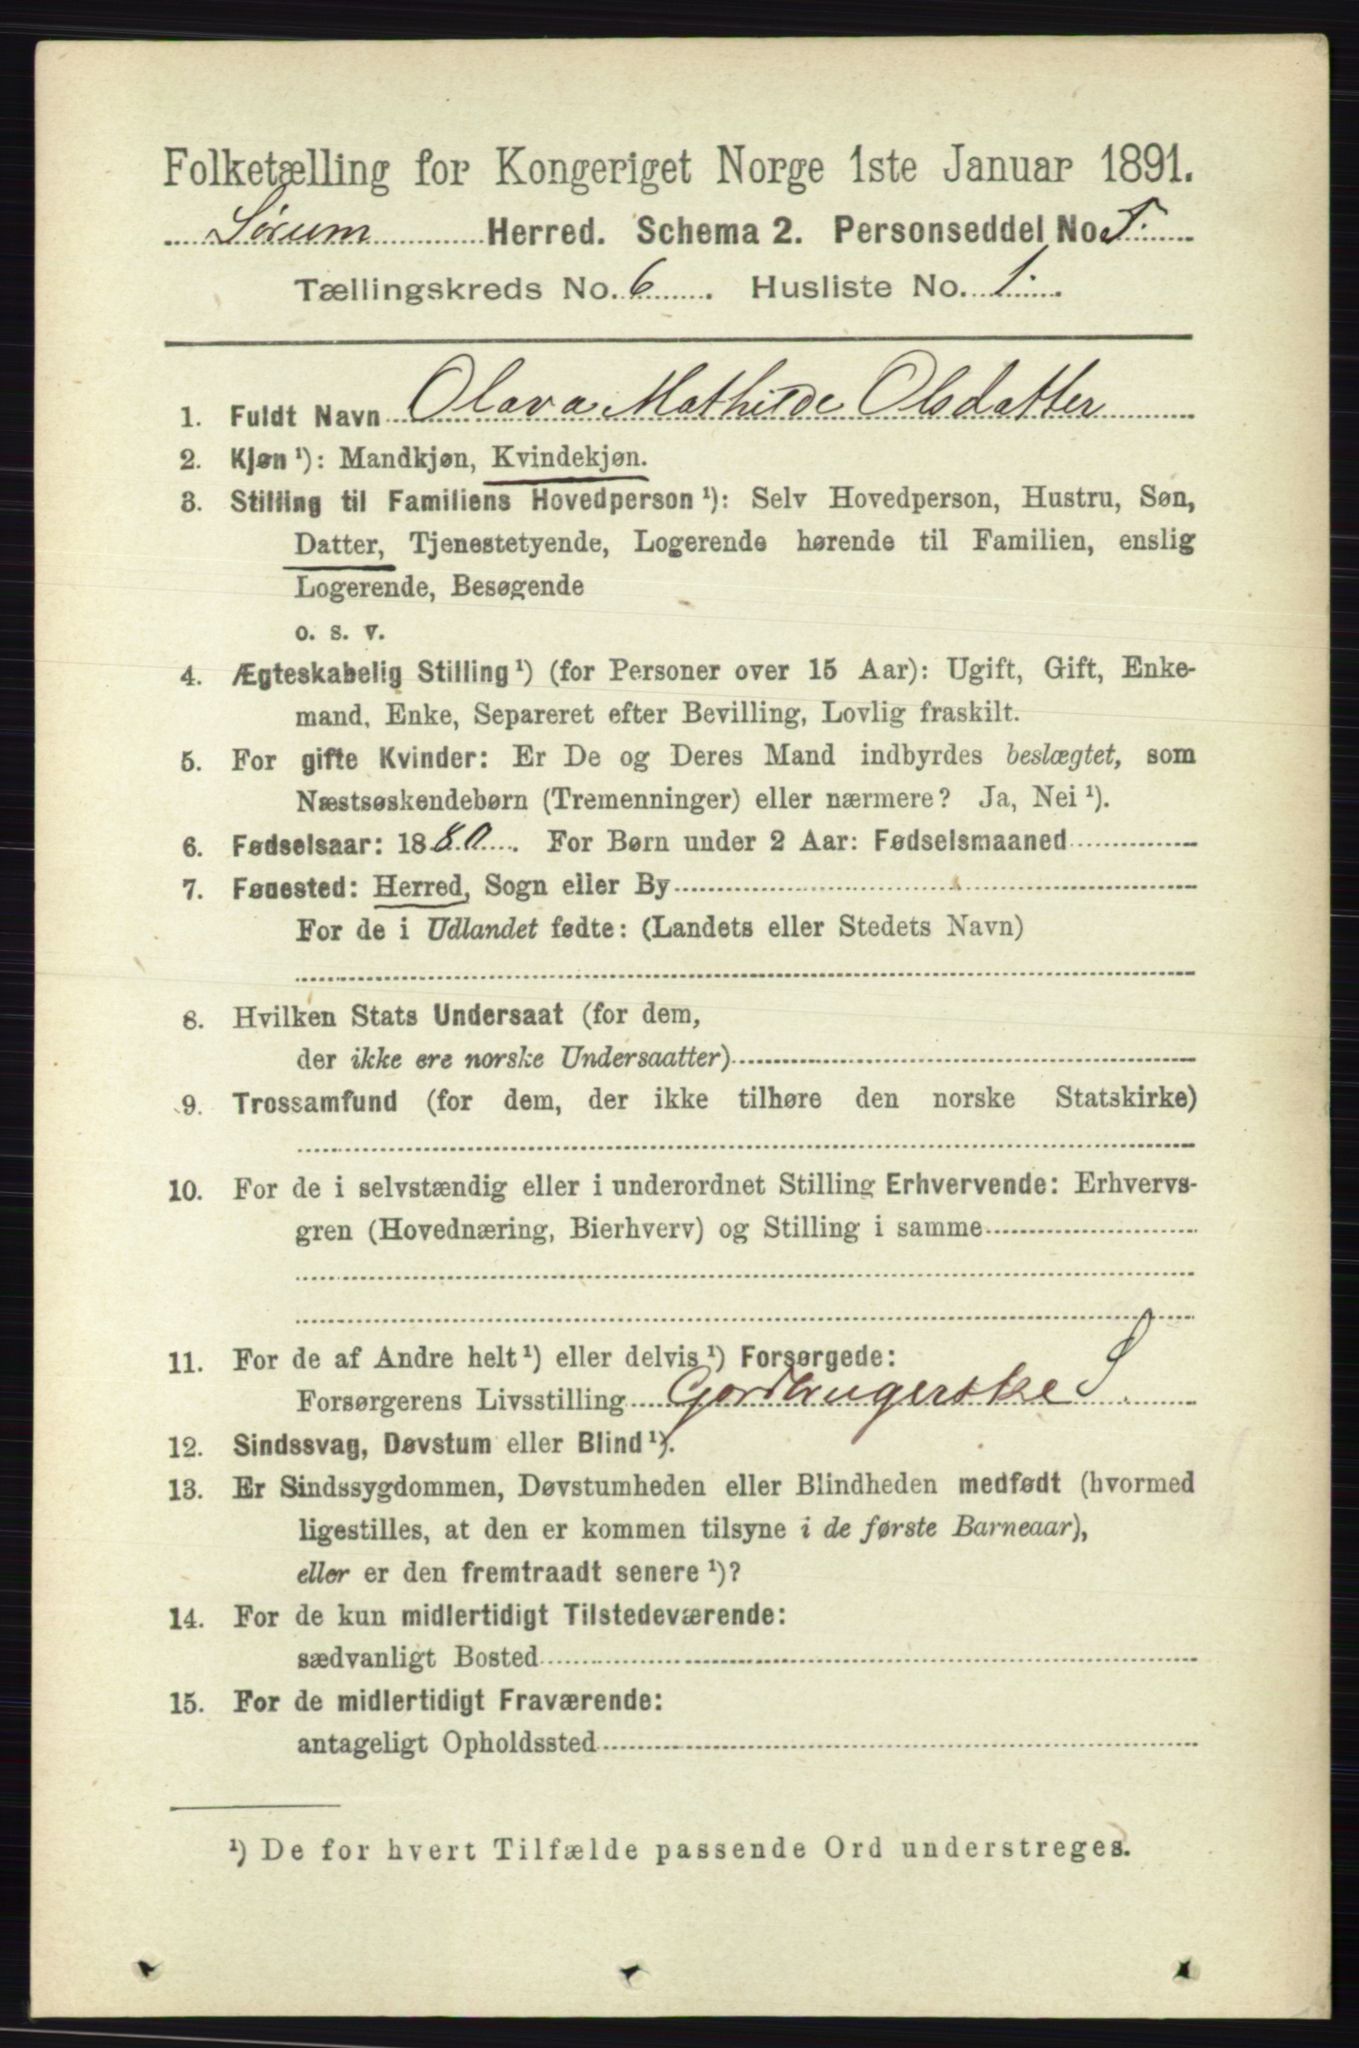 Folketælling for Kongeriget Norge 1ste Januar 1891.
Sørum Herred. Schema 2. Personseddel No 5.
Tællingskreds No. 6. Husliste No. 1.
1. Fuldt Navn Olava Mathilde Olsdatter
2. Kjøn ¹): Mandkjøn, Kvindekjøn.
3. Stilling til Familiens Hovedperson ¹): Selv Hovedperson, Hustru, Søn,
Datter, Tjenestetyende, Logerende hørende til Familien, enslig
Logerende, Besøgende
o. s. v.
4. Ægteskabelig Stilling ¹) (for Personer over 15 Aar): Ugift, Gift, Enke-
mand, Enke, Separeret efter Bevilling, Lovlig fraskilt.
5. For gifte Kvinder: Er De og Deres Mand indbyrdes beslægtet, som
Næstsøskendebørn (Tremenninger) eller nærmere? Ja, Nei ¹).
6. Fødselsaar: 1880. For Børn under 2 Aar: Fødselsmaaned
7. Føuested: Herred, Sogn eller By
For de i Udlandet fødte: (Landets eller Stedets Navn)
8. Hvilken Stats Undersaat (for dem,
der ikke ere norske Undersaatter)
9. Trossamfund (for dem, der ikke tilhøre den norske Statskirke)
10. For de i selvstændig eller i underordnet Stilling Erhvervende: Erhvervs-
gren (Hovednæring, Bierhverv) og Stilling i samme
11. For de af Andre helt ¹) eller delvis ¹) Forsørgede:
Forsørgerens Livsstilling Gardbrugerske S.
12. Sindssvag, Døvstum eller Blind ¹).
13. Er Sindssygdommen, Døvstumheden eller Blindheden medfødt (hvormed
ligestilles, at den er kommen tilsyne i de første Barneaar),
eller er den fremtraadt senere ¹)?
14. For de kun midlertidigt Tilstedeværende:
sædvanligt Bosted
15. For de midlertidigt Fraværende:
antageligt Opholdssted
¹) De for hvert Tilfælde passende Ord understreges.